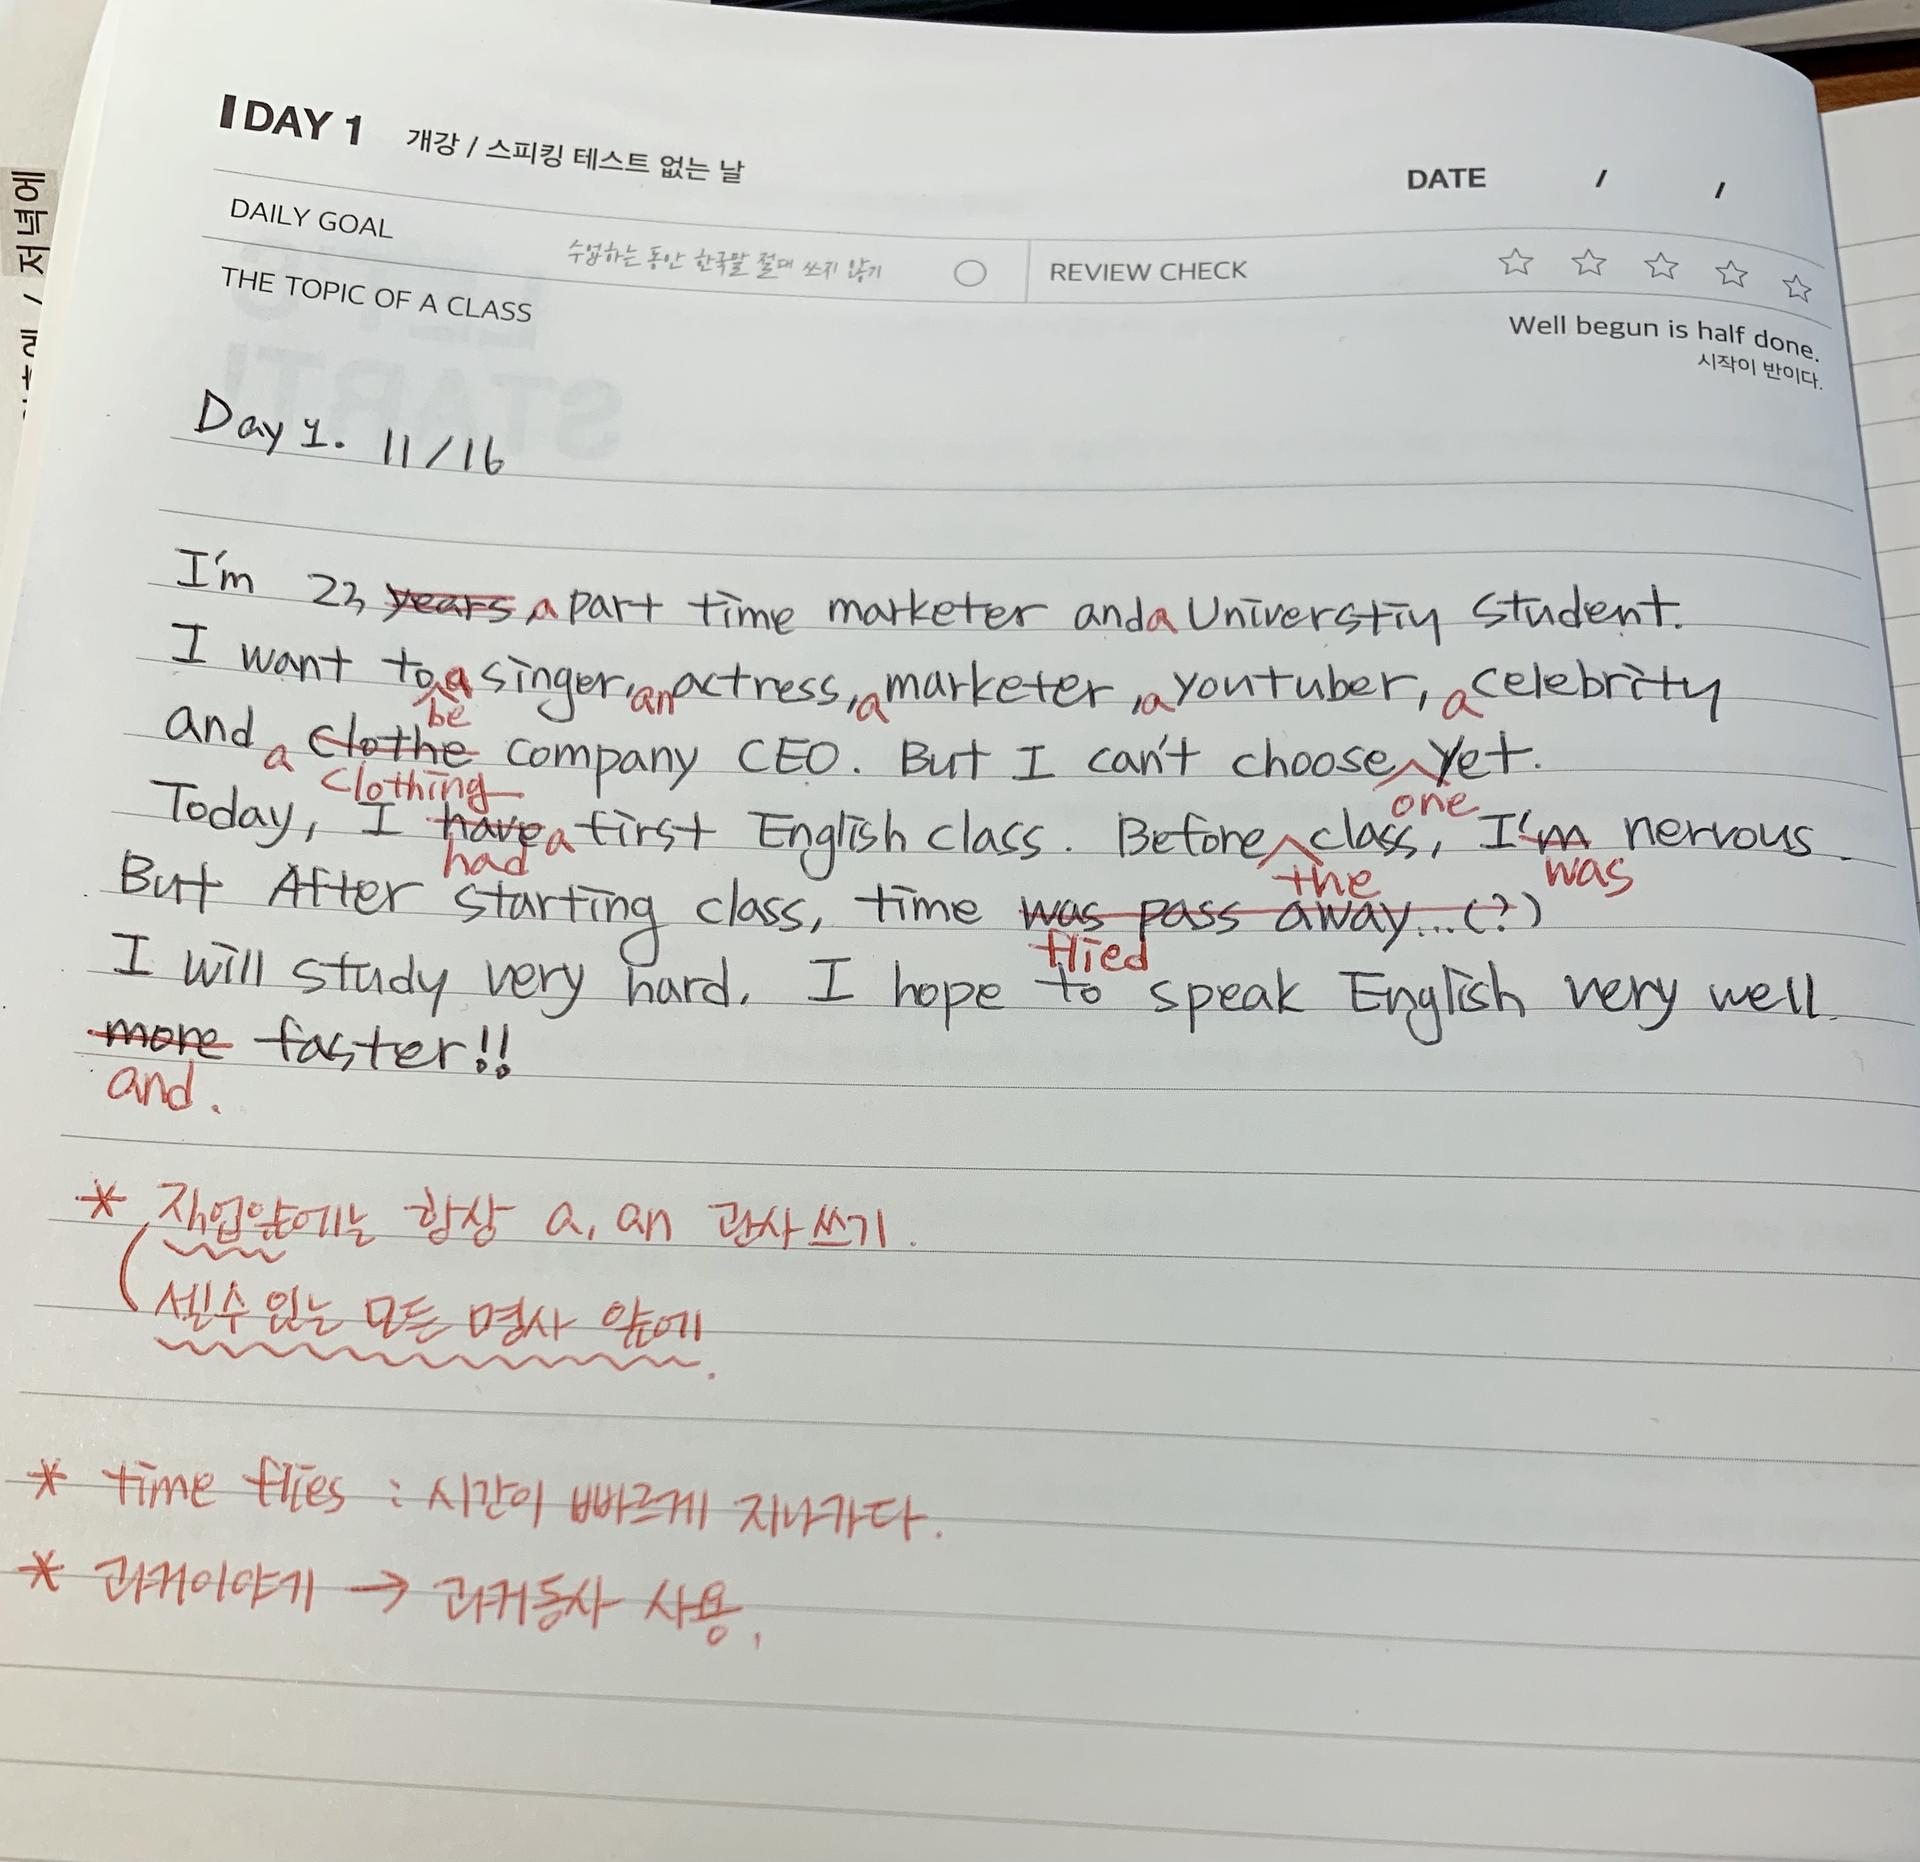 DAY 1 개강 / 스피킹 테스트 없는 날
DATE / /
DAILY GOAL 수업하는 동안 한국말 절대 쓰지 않기
REVIEW CHECK
THE TOPIC OF A CLASS
Well begun is half done.
시작이 반이다.
Day 1. 11/16
I'm 23 years a part time marketer and a Universtiy student.
I want to be a singer, an actress, a marketer, a youtuber, a celebrity
and a clothe company CEO. But I can't choose one yet.
clothing
Today, I have a first English class. Before the class, I'm nervous.
had
was
But After starting class, time was pass away...(?)
flied
I will study very hard. I hope to speak English very well
more faster!!
and.
* 직업앞에는 항상 a, an 관사 쓰기.
셀 수 있는 모든 명사 앞에.
* time flies : 시간이 빠르게 지나가다.
* 과거이야기 → 과거동사 사용.
/ 저녁에